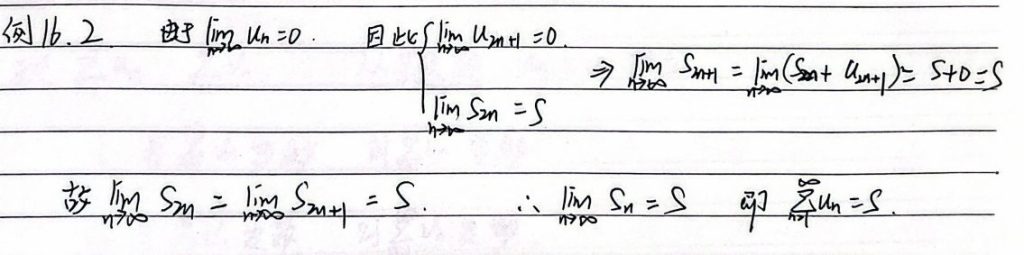 例16.2 由于 lim_{n→∞} u_n = 0. 因此 { lim_{n→∞} u_{2n+1} = 0.
⇒ lim_{n→∞} S_{2n+1} = lim_{n→∞} (S_{2n} + u_{2n+1}) = S+0 = S
lim_{n→∞} S_{2n} = S
故 lim_{n→∞} S_{2n} = lim_{n→∞} S_{2n+1} = S. ∴ lim_{n→∞} S_n = S 即 ∑_{n=1}^{∞} u_n = S.